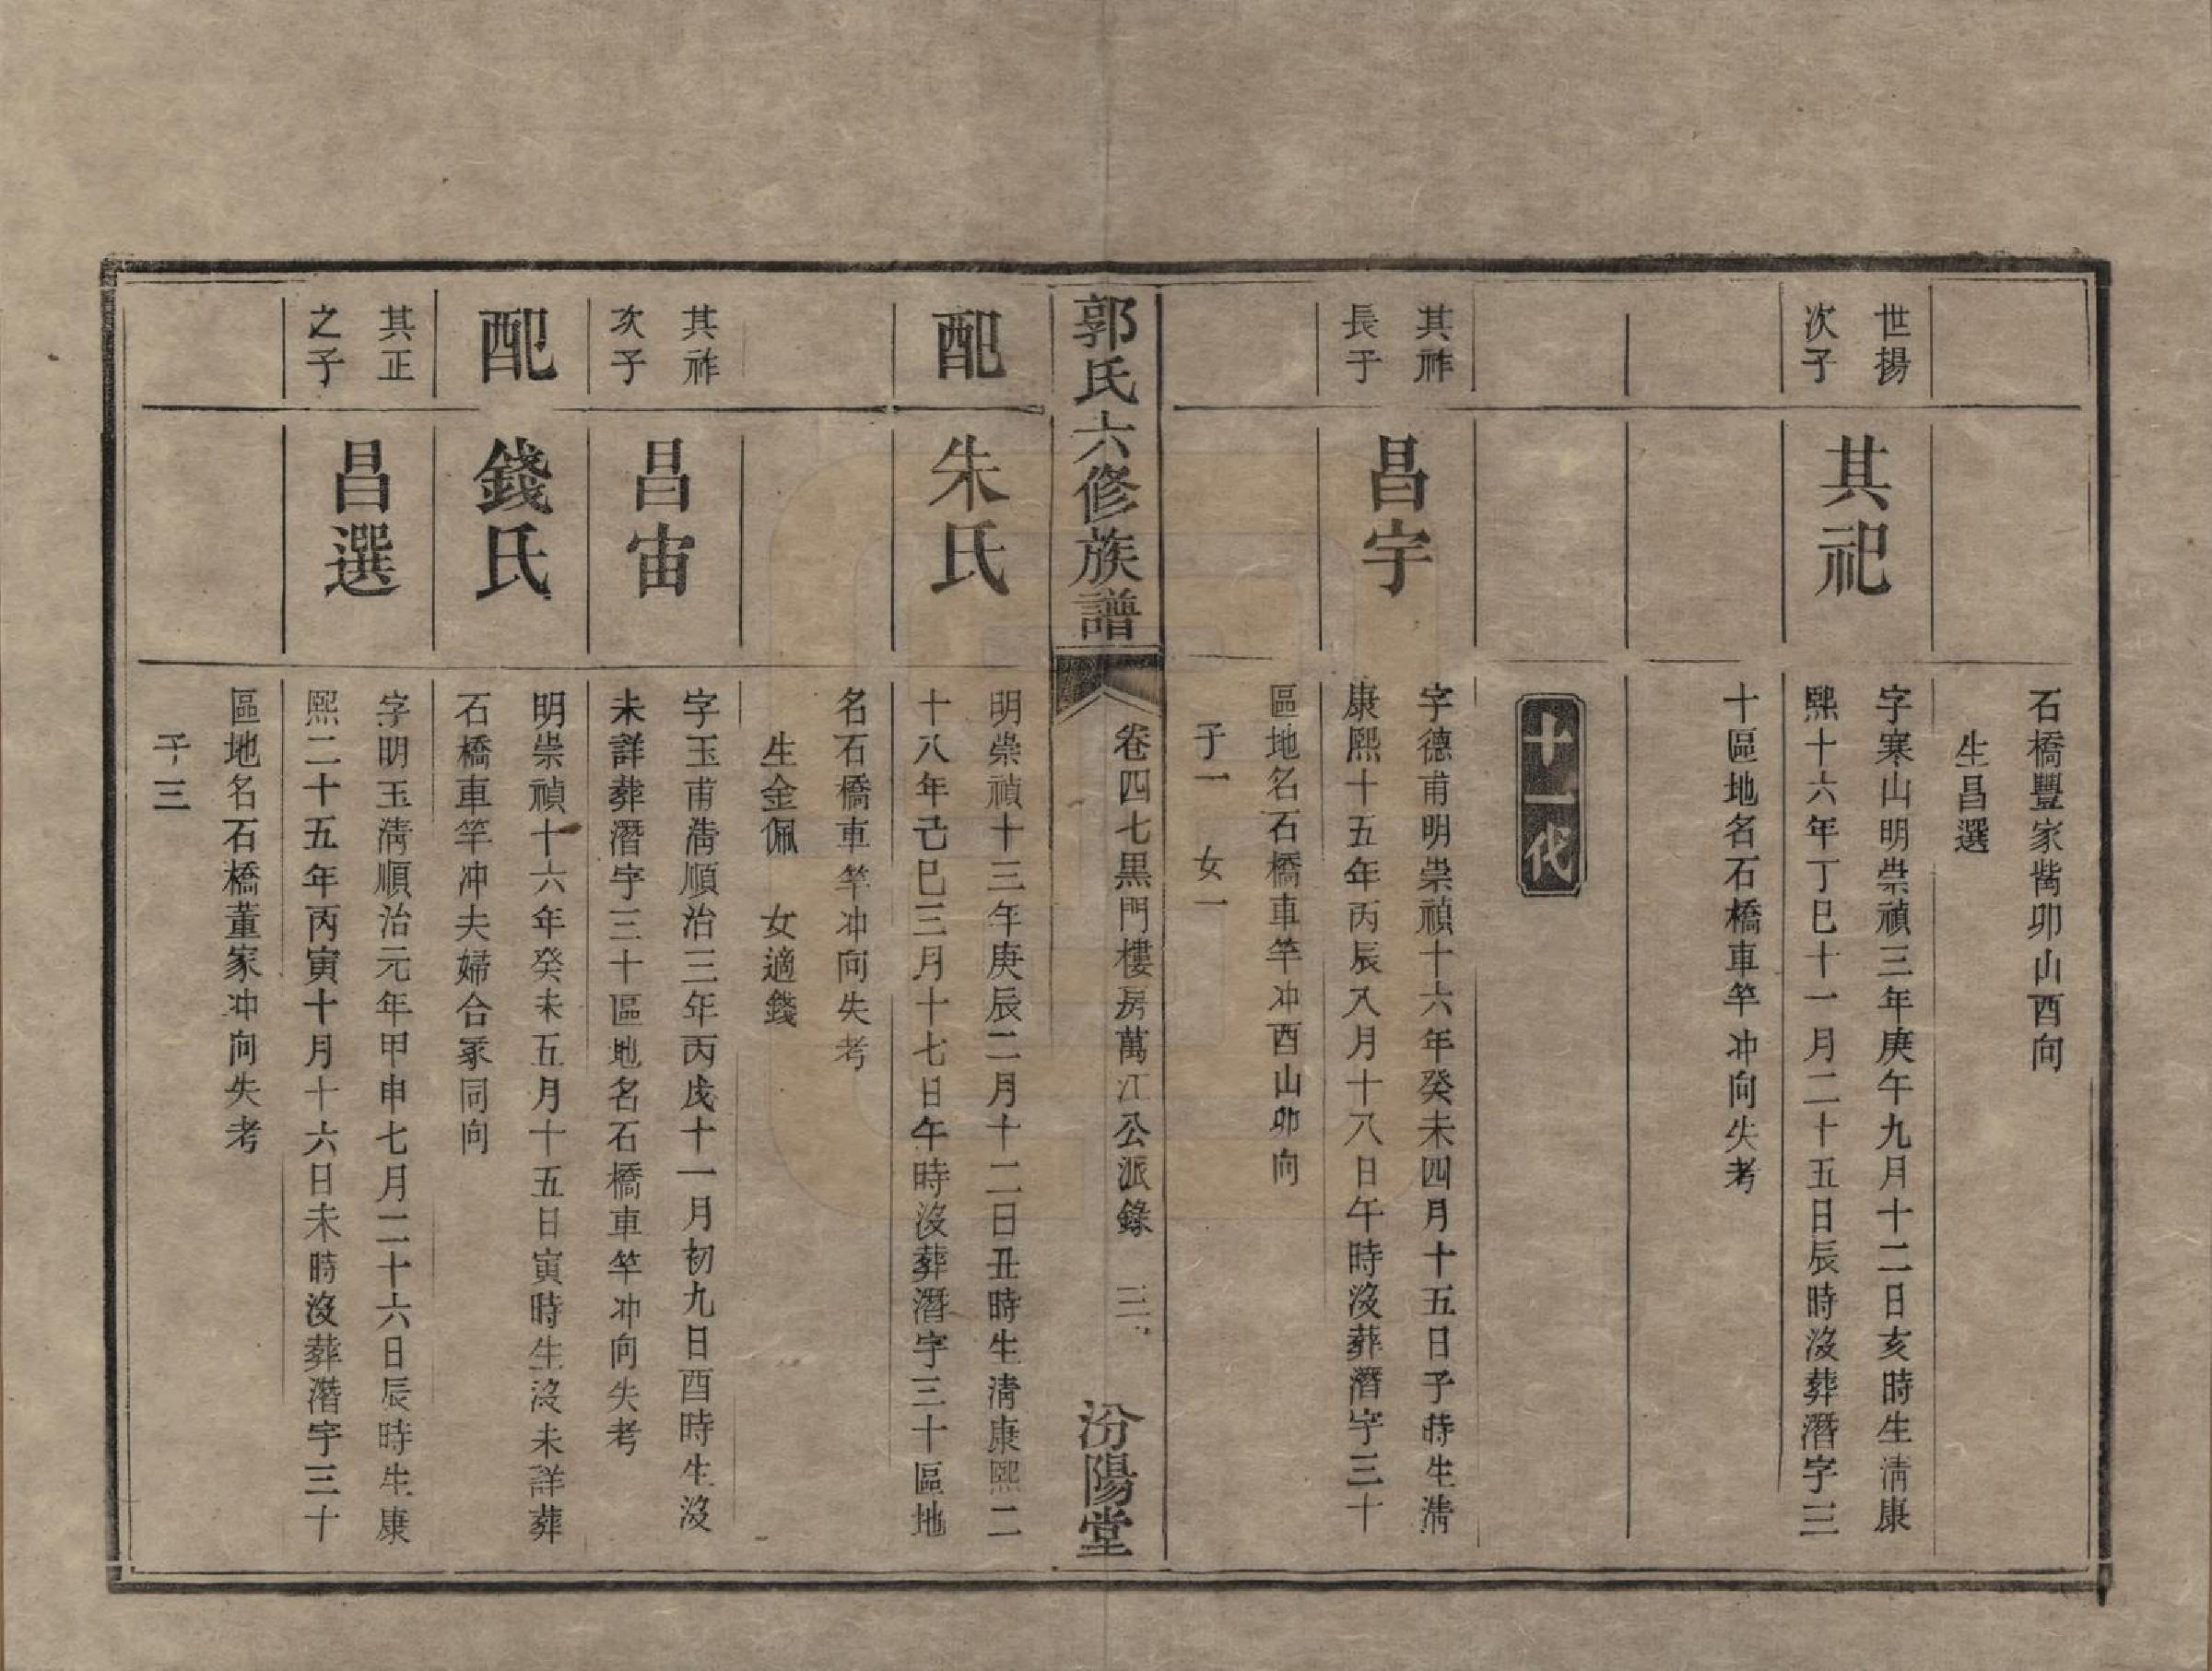 石橋豐家觜卯山酉向
生昌選
世揚
次子
其祀
字寒山明崇禎三年庚午九月十二日亥時生淸康
熙十六年丁巳十一月二十五日辰時沒葬潛字三
十區地名石橋車竿冲向失考
十一代
其祚
長子
昌宇
字德甫明崇禎十六年癸未四月十五日子時生淸
康熙十五年丙辰八月十八日午時沒葬潛字三十
區地名石橋車竿冲酉山卯向
子一 女一
郭氏六修族譜
卷四七黑門樓房萬江公派錄 三
汾陽堂
配
朱氏
明崇禎十三年庚辰二月十二日丑時生淸康熙二
十八年己巳三月十七日午時沒葬潛字三十區地
名石橋車竿冲向失考
生金佩 女適錢
其祚
次子
昌宙
字玉甫淸順治三年丙戌十一月初九日酉時生沒
未詳葬潛字三十區地名石橋車竿冲向失考
配
錢氏
明崇禎十六年癸未五月十五日寅時生沒未詳葬
石橋車竿冲夫婦合冢同向
其正
之子
昌選
字明玉淸順治元年甲申七月二十六日辰時生康
熙二十五年丙寅十月十六日未時沒葬潛字三十
區地名石橋董家冲向失考
子三